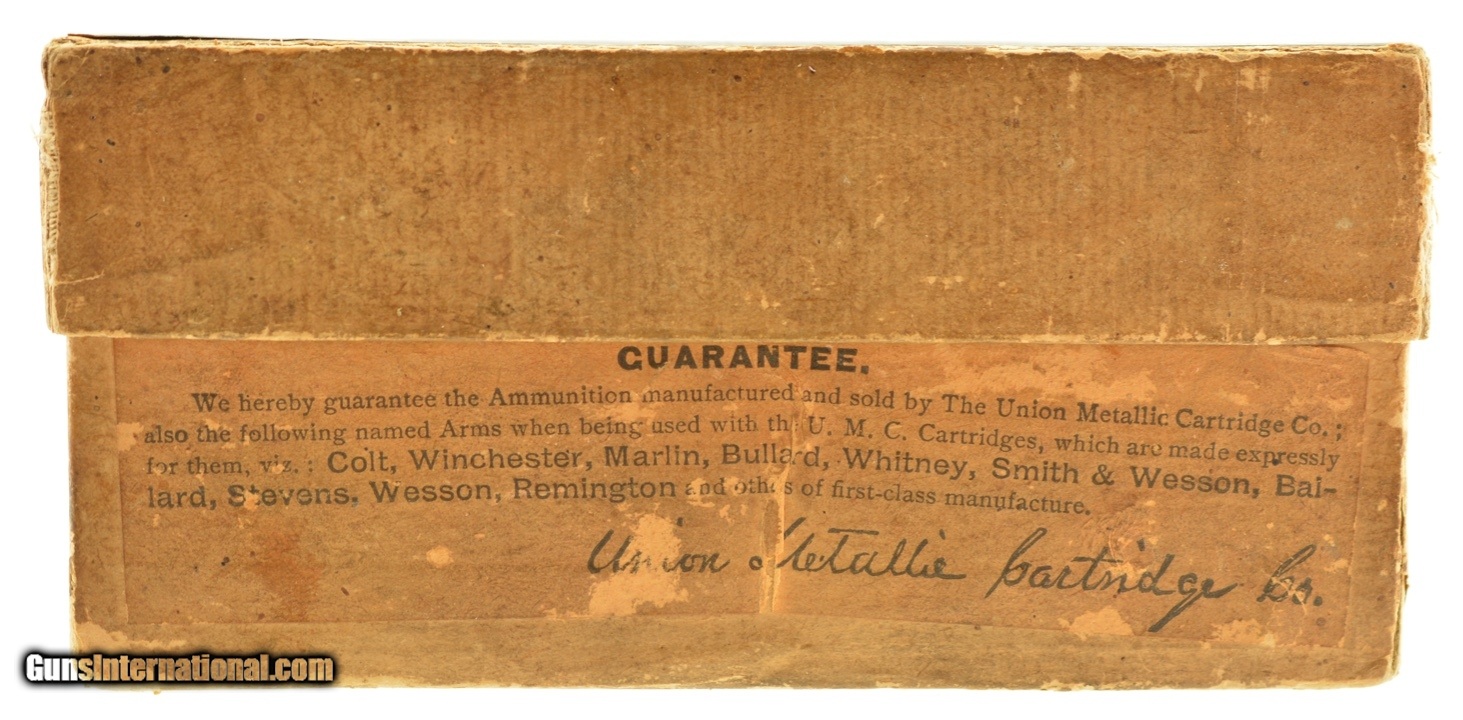 GUARANTEE.
We hereby guarantee the Ammunition manufactured and sold by The Union Metallic Cartridge Co.;
also the following named Arms when being used with the U. M. C. Cartridges, which are made expressly
for them, viz.: Colt, Winchester, Marlin, Bullard, Whitney, Smith & Wesson, Bal-
lard, Stevens, Wesson, Remington and others of first-class manufacture.
Union Metallic Cartridge Co.
GunsInternational.com